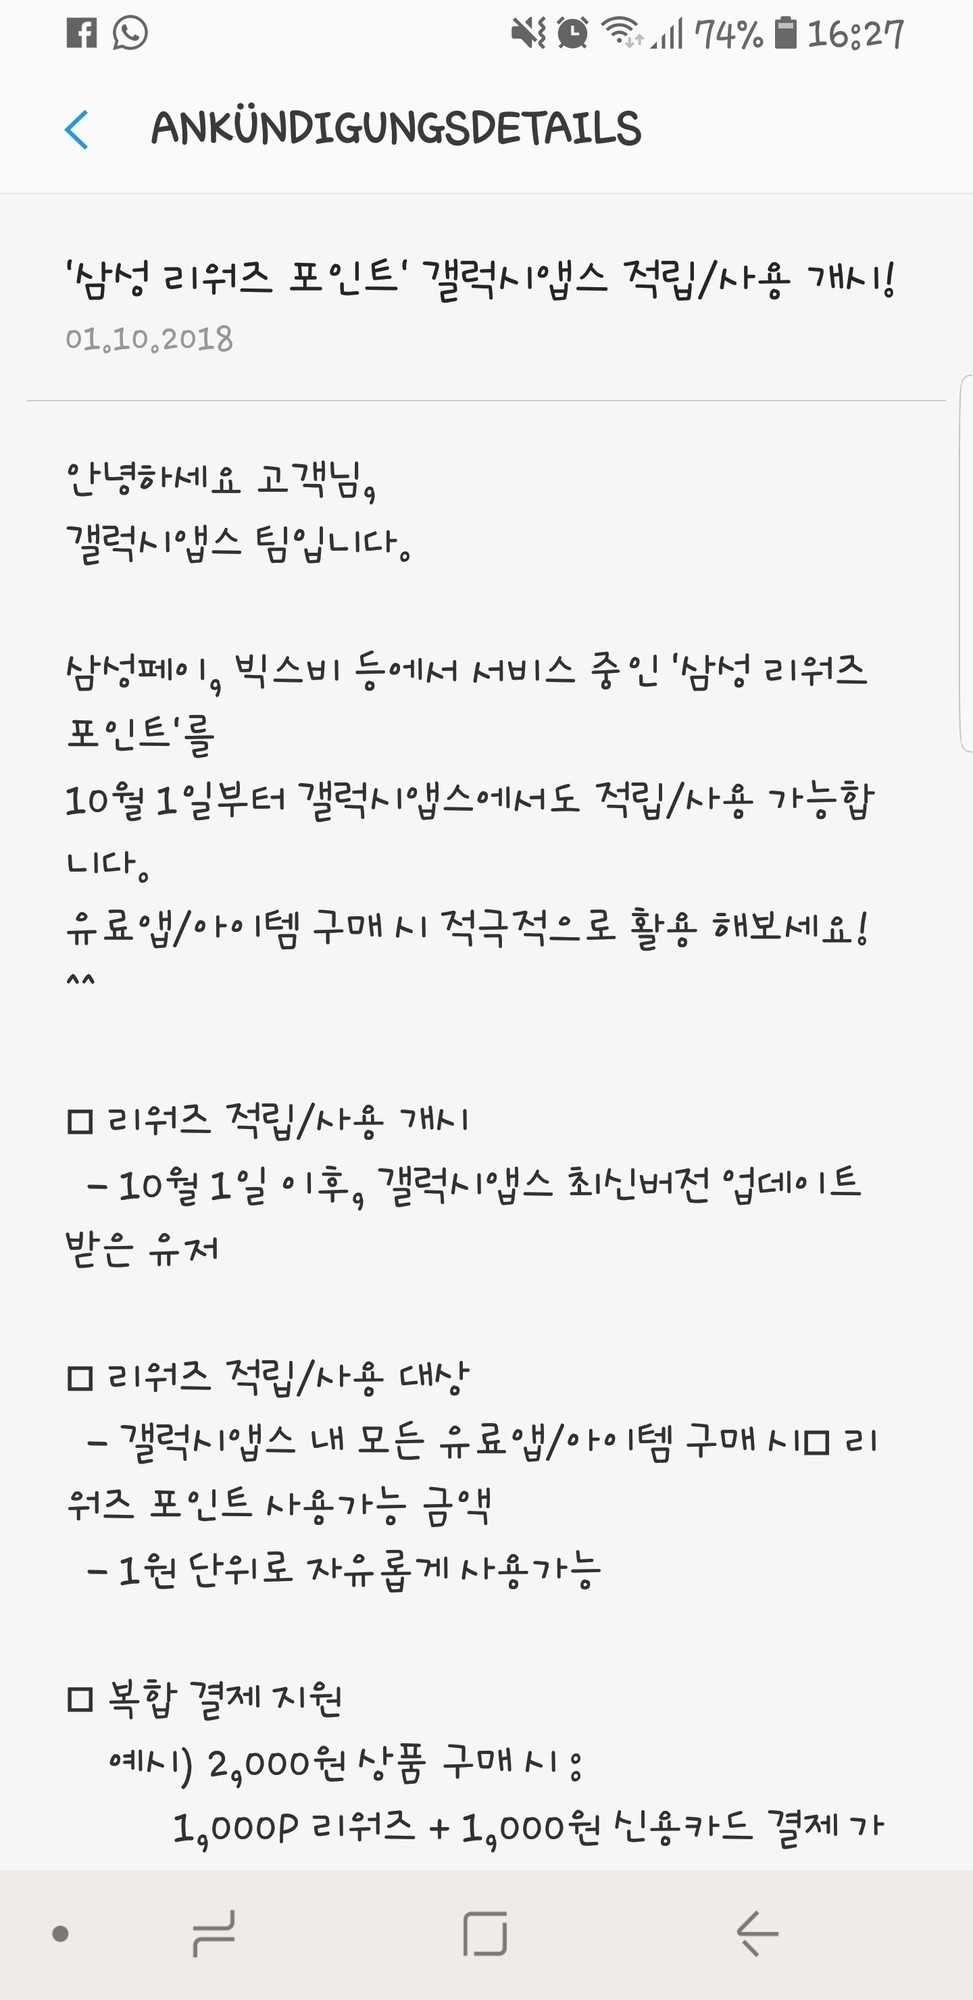 74% 16:27
ANKÜNDIGUNGSDETAILS
'삼성 리워즈 포인트' 갤럭시앱스 적립/사용 개시!
01.10.2018
안녕하세요 고객님,
갤럭시앱스 팀입니다.
삼성페이, 빅스비 등에서 서비스 중인 '삼성 리워즈
포인트'를
10월 1일부터 갤럭시앱스에서도 적립/사용 가능합
니다.
유료앱/아이템 구매 시 적극적으로 활용 해보세요!
^^
□ 리워즈 적립/사용 개시
- 10월 1일 이후, 갤럭시앱스 최신버전 업데이트
받은 유저
□ 리워즈 적립/사용 대상
- 갤럭시앱스 내 모든 유료앱/아이템 구매 시□ 리
워즈 포인트 사용가능 금액
- 1원 단위로 자유롭게 사용가능
□ 복합 결제 지원
예시) 2,000원 상품 구매 시 :
1,000P 리워즈 + 1,000원 신용카드 결제 가